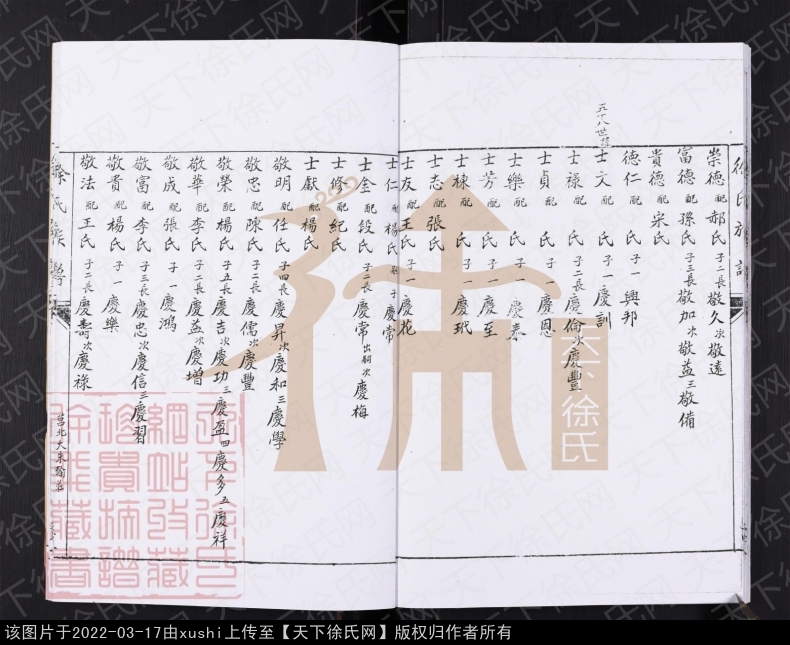 徐氏族譜
崇德配郝氏子二長敬久次敬遠
富德配孫氏子三長敬加次敬益三敬備
貴德配宋氏
德仁配 氏子一興邦
五十八世
士文配 氏子一慶訓
士祿配 氏子二長慶倫次慶豐
士貞配 氏子一慶恩
士樂配 氏子一慶泰
士芳配 氏子一慶至
士棟配 氏子一慶珉
士志配張氏
士友配王氏子一慶花
士仁配楊氏 子慶常
士全配段氏子二長慶常出嗣次慶梅
士修配紀氏
士獻配楊氏
敬明配任氏子四長慶昇次慶和三慶學
敬忠配陳氏子二長慶儒次慶豐
敬榮配楊氏子五長慶吉次慶功三慶盈四慶多五慶祥
敬華配李氏子二長慶益次慶增
敬成配張氏子一慶鴻
敬富配李氏子三長慶忠次慶信三慶習
敬貴配楊氏子一慶樂
敬法配王氏子二長慶壽次慶祿
徐氏族譜
莒北大朱
天下徐氏
天下徐氏网
该图片于2022-03-17由xushi上传至【天下徐氏网】版权归作者所有